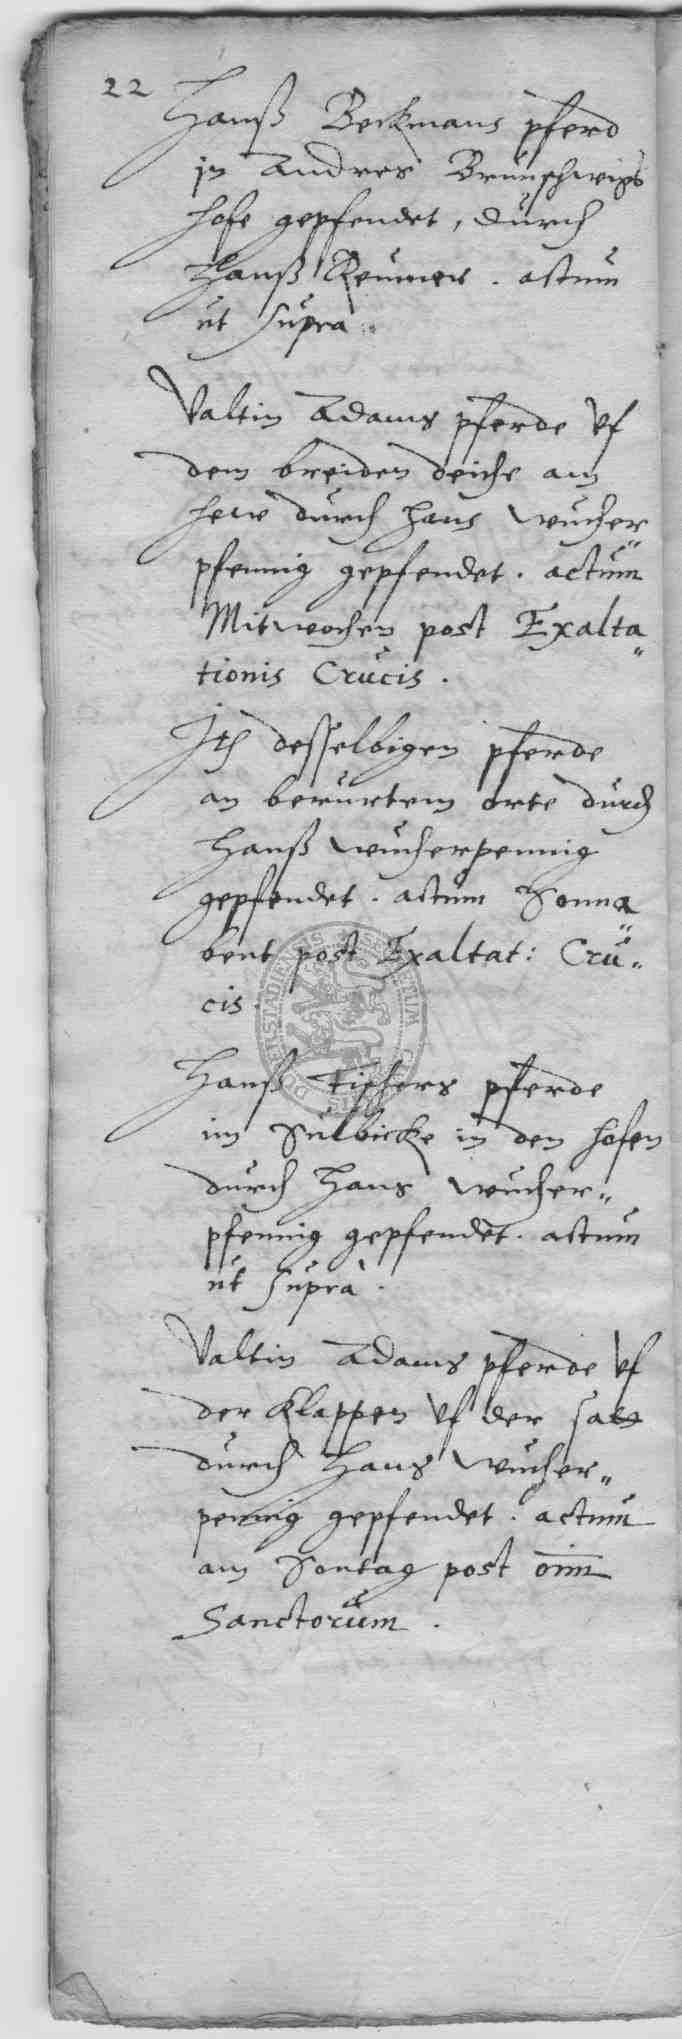 22
Hanß Beckmans pferd
in Andres Brunschwigs
hofe gepfendet, durch
Hanß Reumer. actum
ut supra.
Valtin Adams pferde vf
dem breiden deiche am
hew durch Hans Wucher„
pfennig gepfendet. actum
Mitwochen post Exalta„
tionis Crucis.
Ith desselbigen pferde
an berurtem orte durch
Hanß Wucherpennig
gepfendet. actum Sonna„
bent post Exaltat: Cru„
cis.
Hanß Tischers pferde
im Sulbicke in den hofen
durch Hans Wucher„
pfennig gepfendet. actum
ut suprà.
Valtin Adams pferde vf
der Klappen vf der satt
durch Hans Wucher„
pennig gepfendet. actum
am Sontag post oim
Sanctorum.